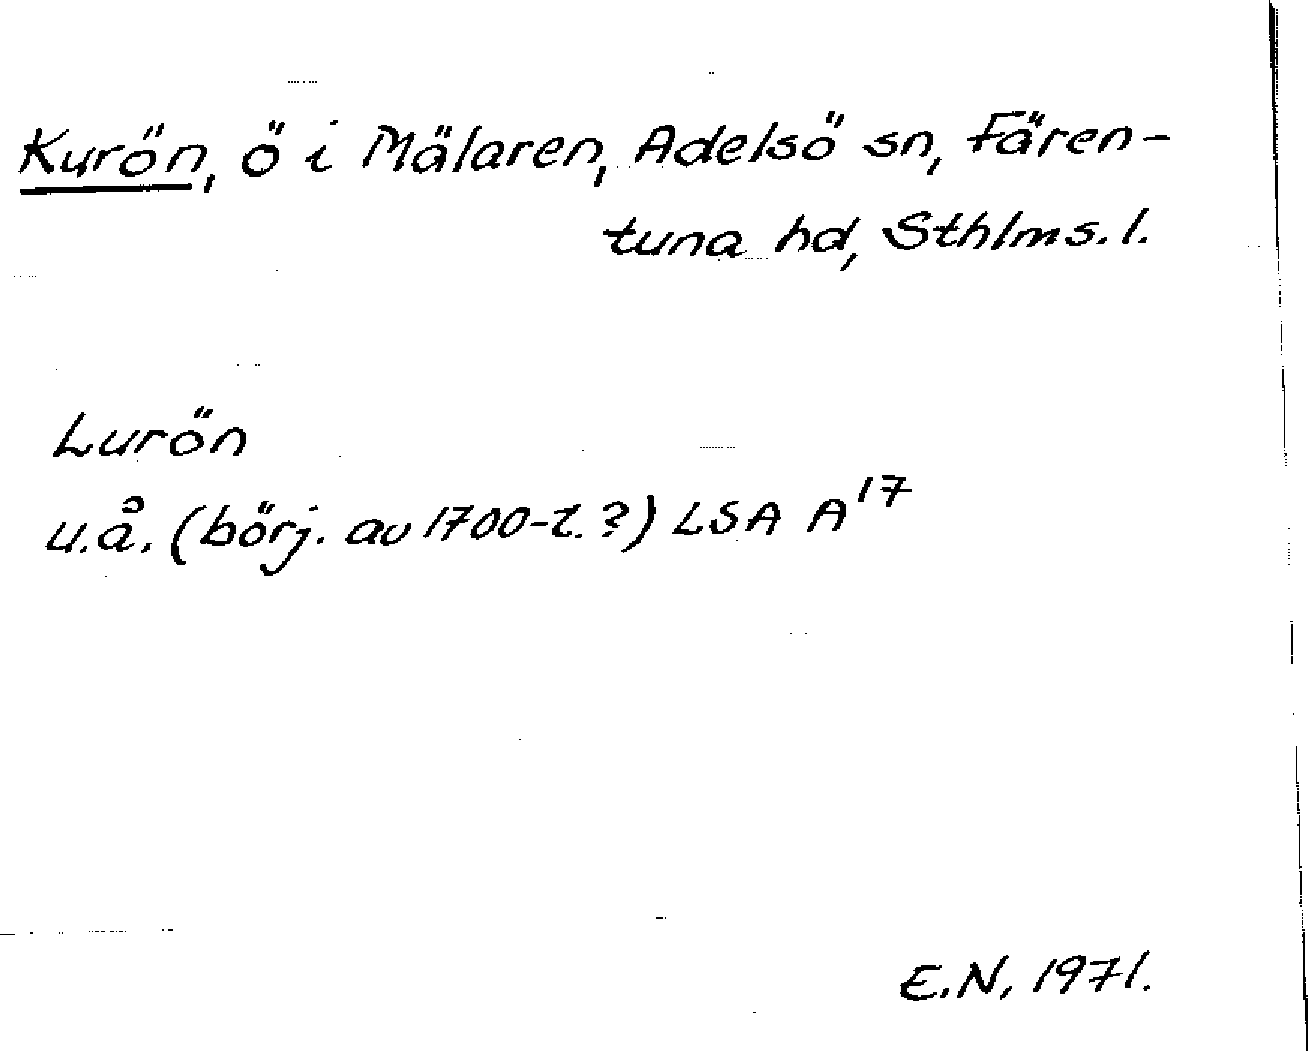 Kurön, ö i Mälaren, Adelsö sn, Fären-
tuna hd, Sthlms. l.
Lurön
u.å. (börj. av 1700-t.?) LSA A¹⁷
E.N, 1971.